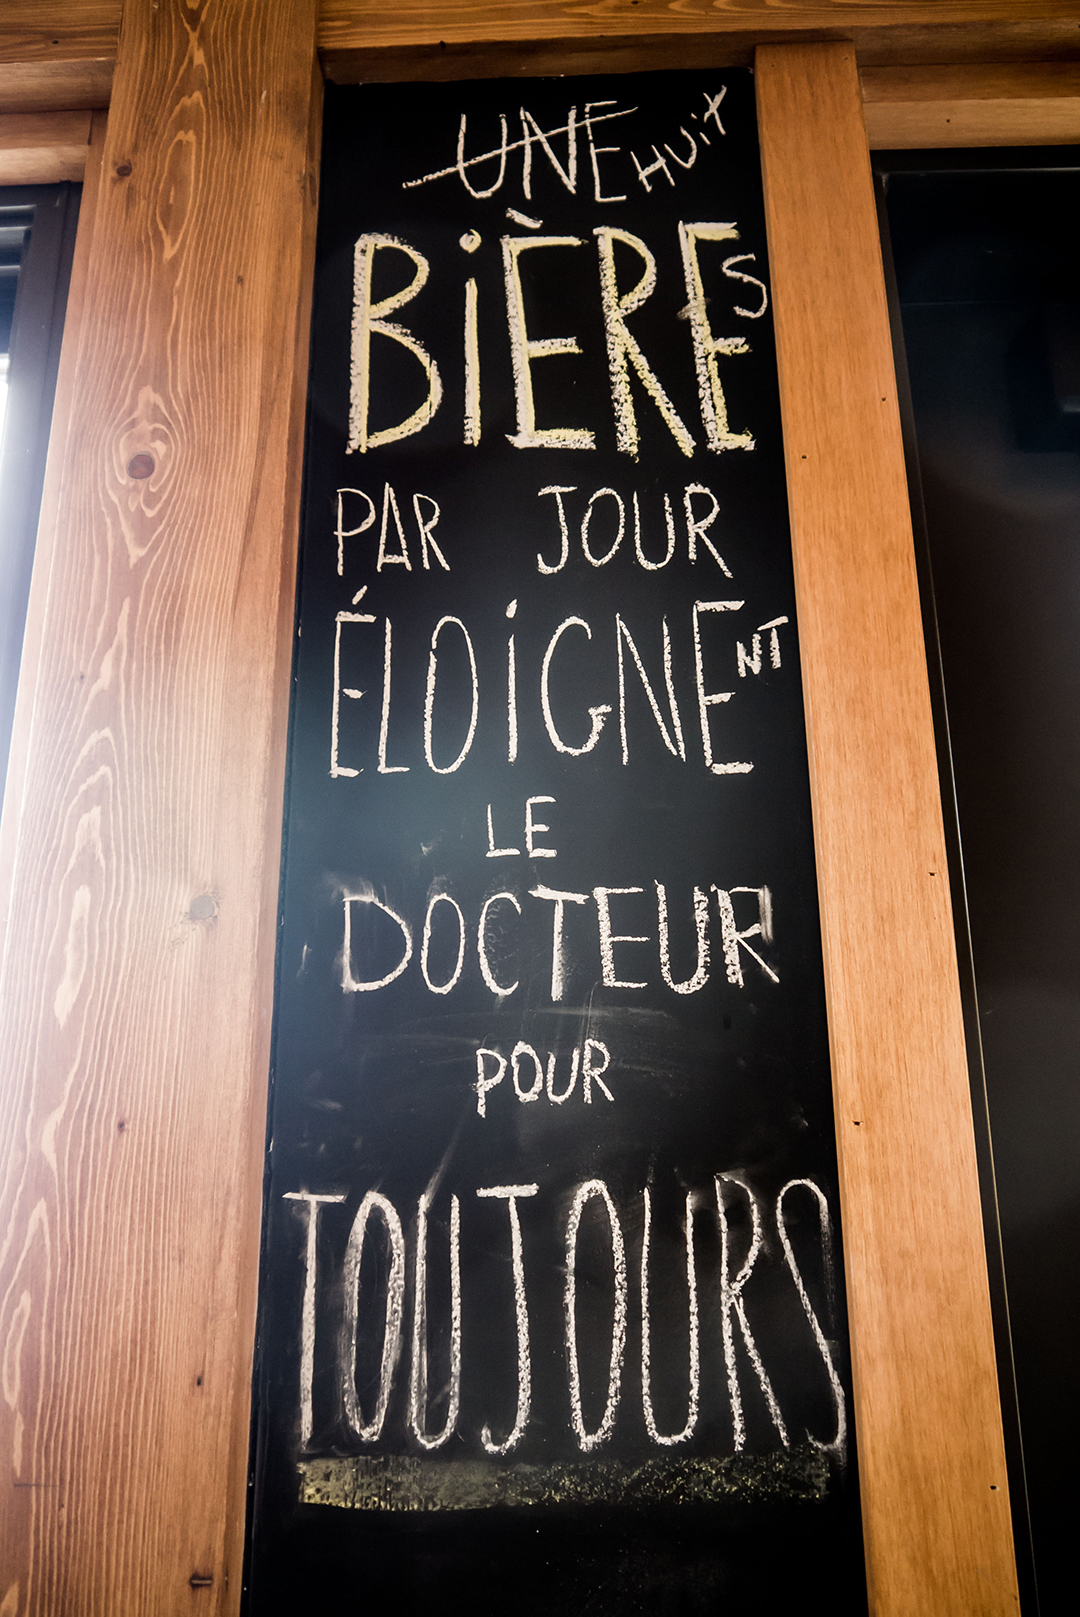 UNE HUIT
BIÈRES
PAR JOUR
ÉLOIGNENT
LE
DOCTEUR
POUR
TOUJOURS